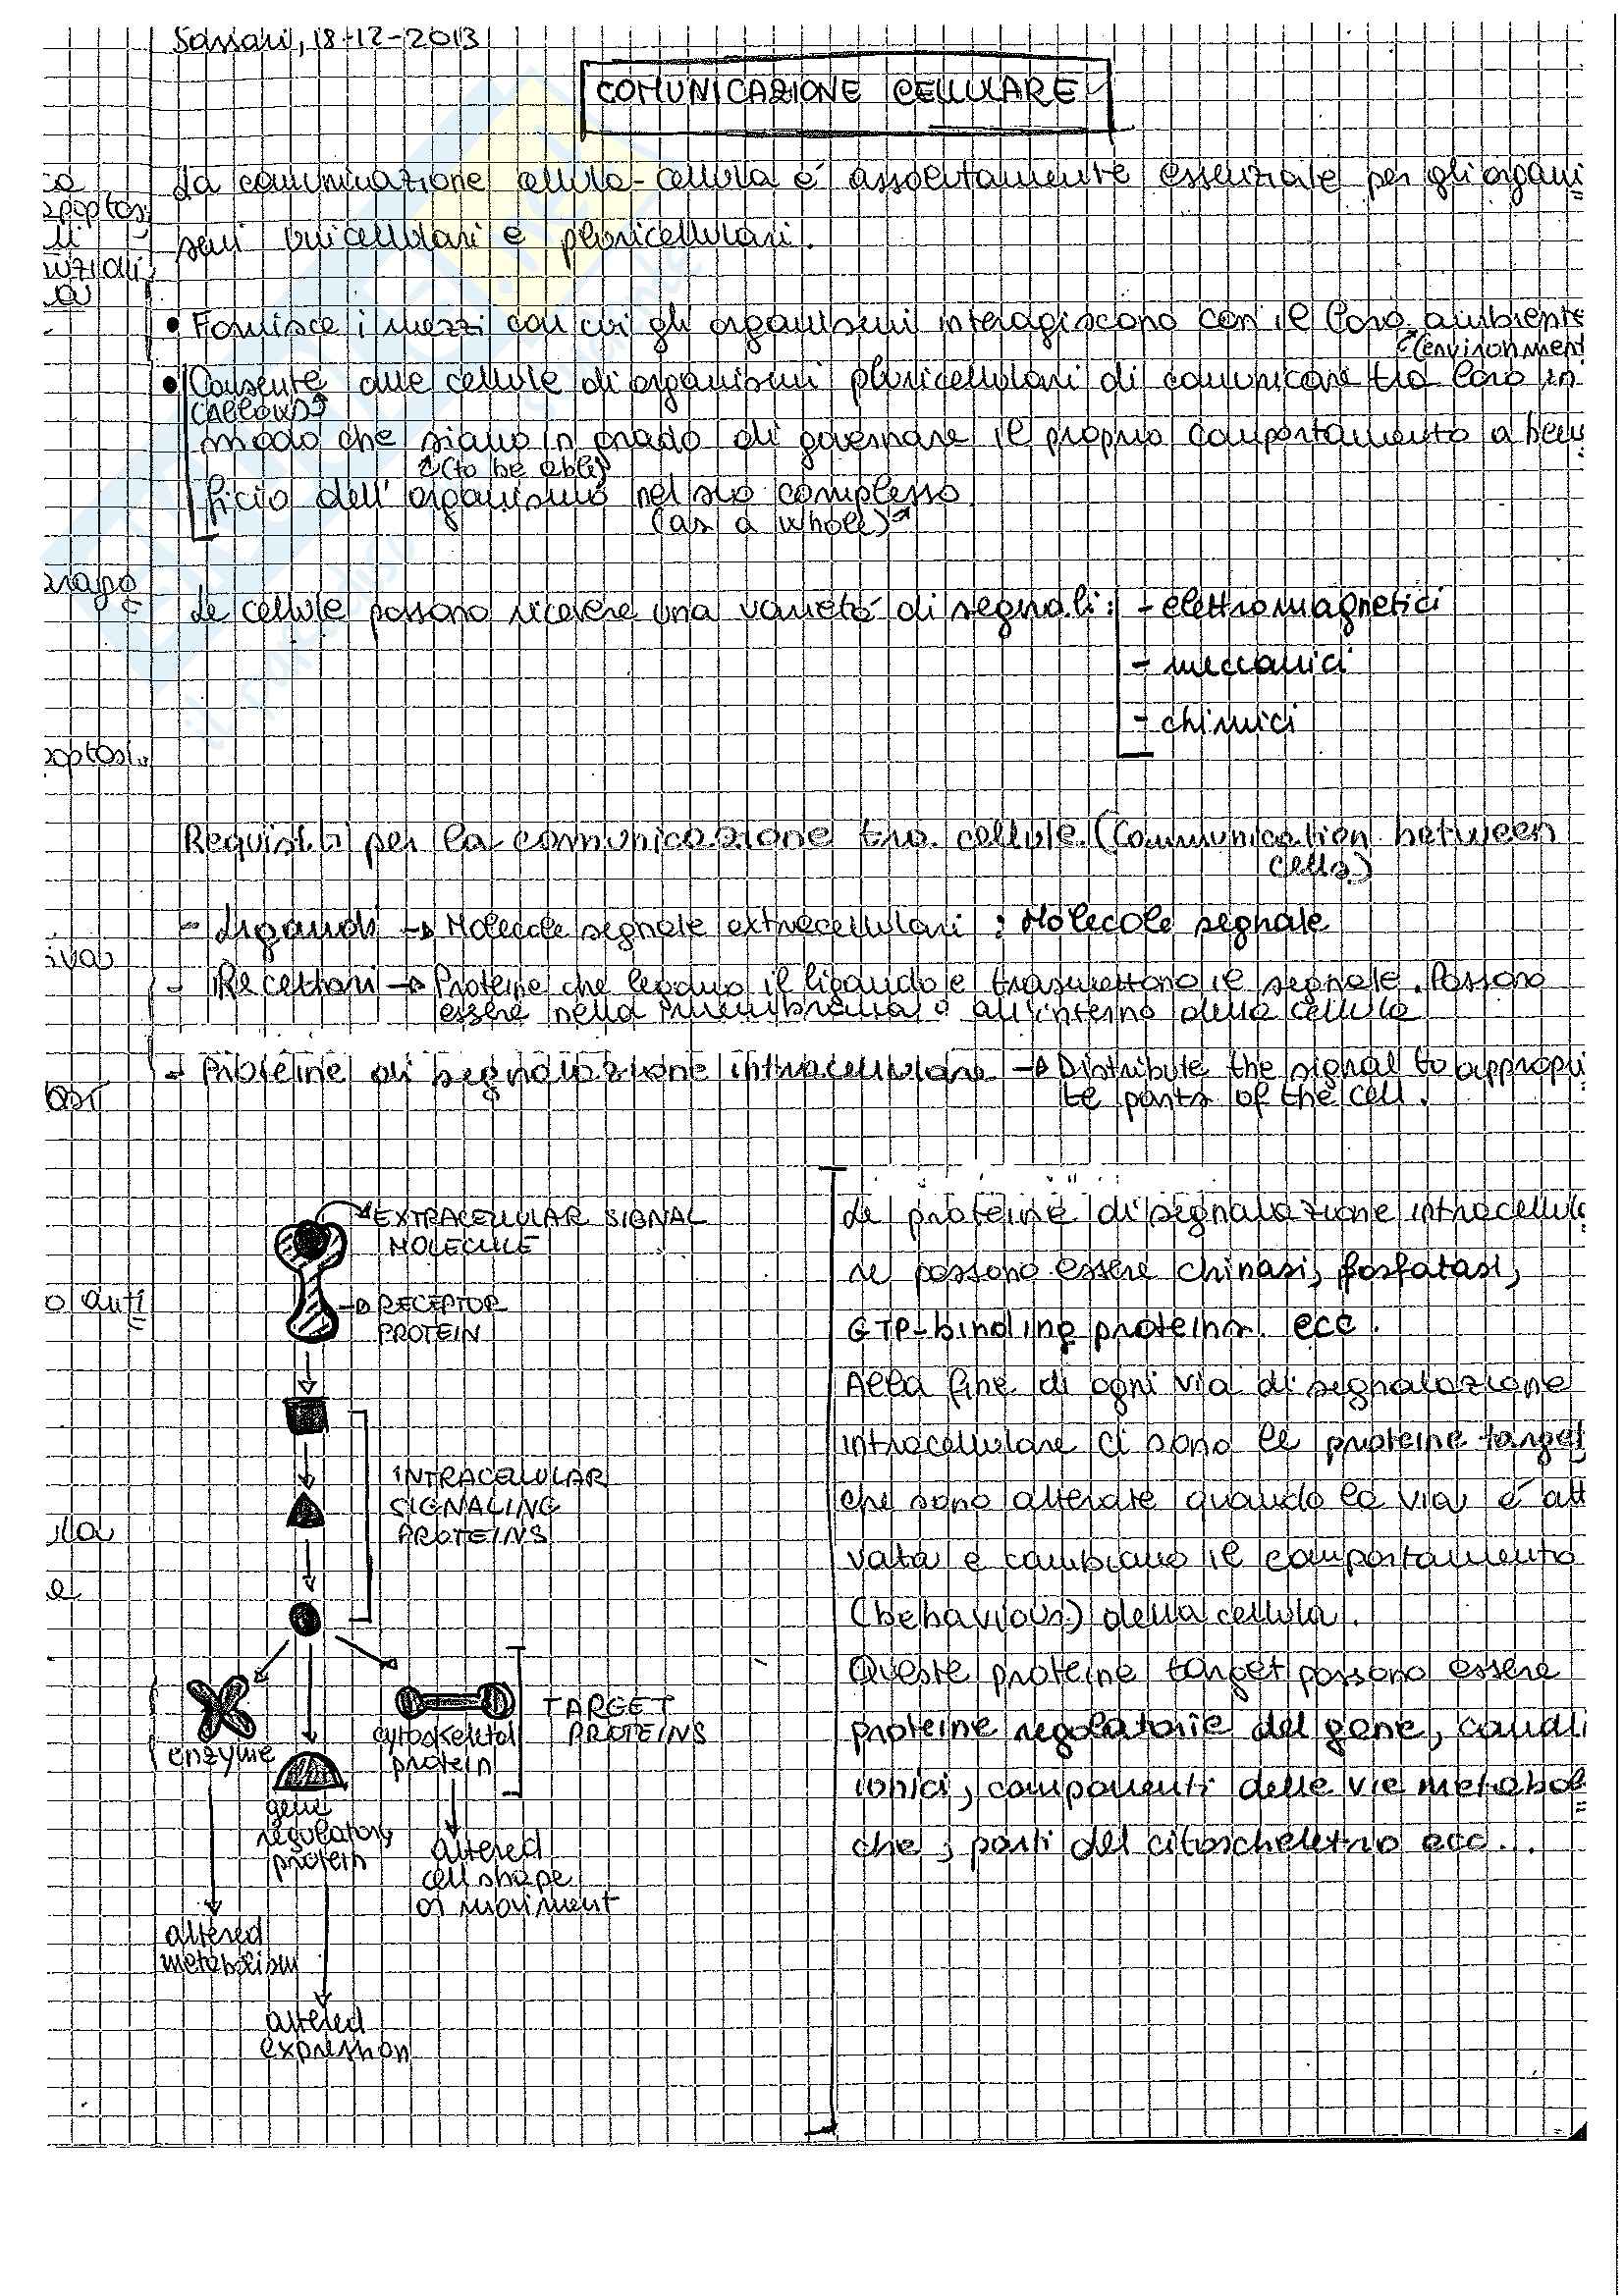 Sassari, 18-12-2013
COMUNICAZIONE CELLULARE
La comunicazione cellula-cellula é assolutamente essenziale per gli organi
smi unicellulari e pluricellulari.
• Fornisce i mezzi con cui gli organismi interagiscono con il loro ambiente
(environment
• Consente alle cellule di organismi pluricellulari di comunicare tra loro in
(Allows)
modo che siano in grado di governare il proprio comportamento a bene
(to be able)
ficio dell'organismo nel suo complesso
(as a whole)
Le cellule possono ricevere una varietá di segnali: - elettromagnetici
- meccanici
- chimici
Requisiti per la comunicazione tra cellule. (Communication between
cells)
- Ligandi → Molecole segnale extracellulari : Molecole segnale
- Recettori → Proteine che legano il ligando e trasmettono il segnale. Possono
essere nella membrana o all'interno della cellula
- Proteine di segnalazione intracellulare → Distribute the signal to appropri
te parts of the cell.
EXTRACELLULAR SIGNAL
MOLECULE
→ RECEPTOR
PROTEIN
INTRACELLULAR
SIGNALING
PROTEINS
TARGET
PROTEINS
enzyme
cytoskeletal
protein
gene
regulatory
protein
altered
cell shape
or moviment
altered
metabolism
altered
expression
Le proteine di segnalazione intracellula
re possono essere chinasi, fosfatasi,
GTP-binding proteins. ecc.
Alla fine di ogni via di segnalazione
intracellulare ci sono le proteine target
che sono alterate quando la via é att
vata e cambiano il comportamento
(behaviour) della cellula.
Queste proteine target possono essere
proteine regolatorie del gene, canali
ionici, componenti delle vie metabol
che, parti del citoscheletro ecc...
apoptosi
optosi.
iva
o anti
e